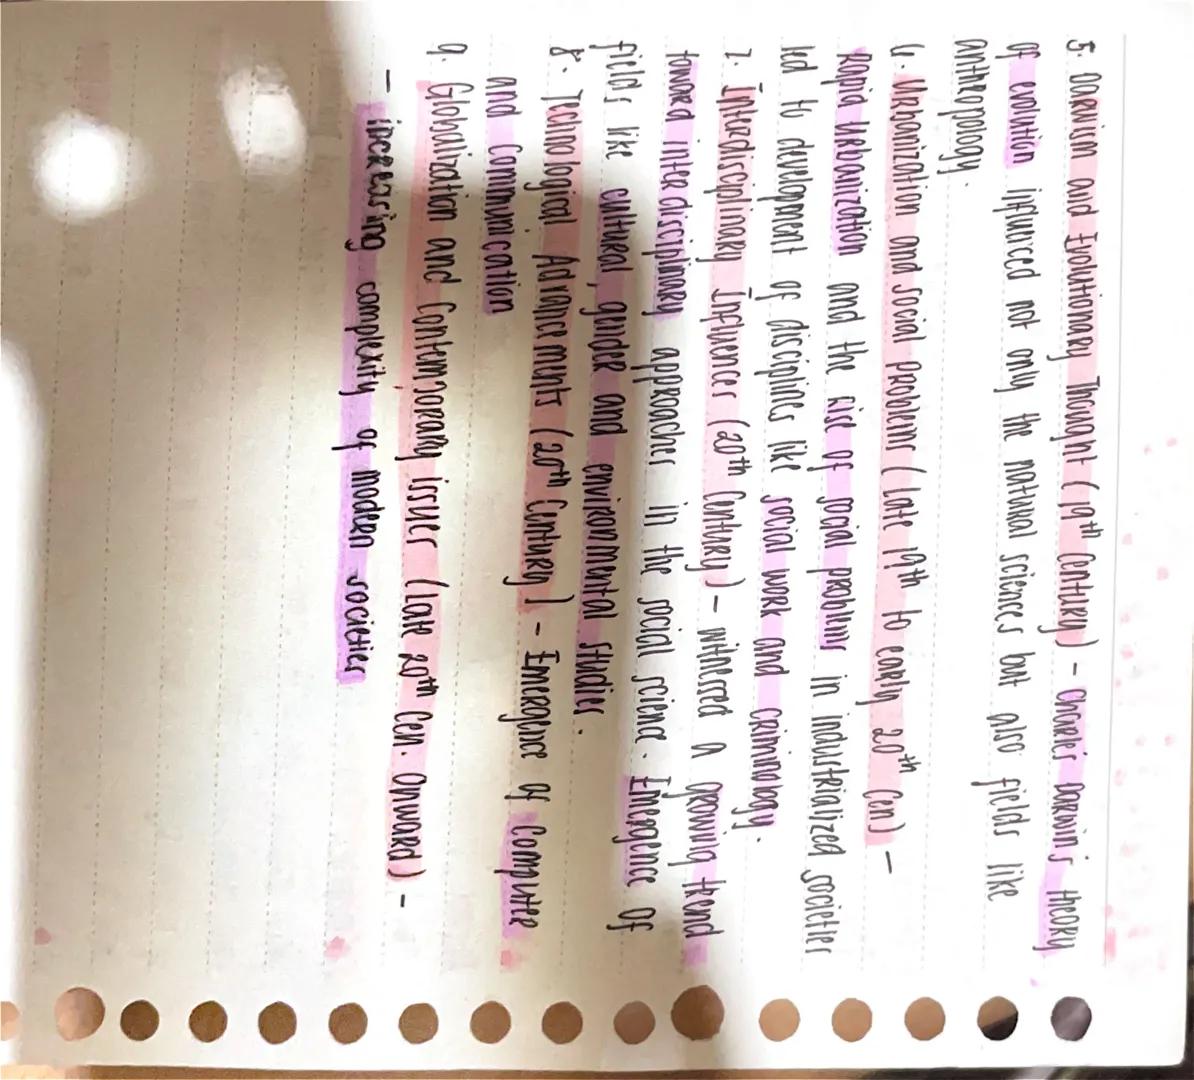 5. Darwin and Evolutionary Thought (19th century) - Charles Darwin's theory
of evolution influnced not only the natural sciences but also fields like
anthropology.
6. Urbanization and social problems (Late 19th to early 20th Cen) -
Rapid urbanization and the rise of social problems in industrialized societies
led to development of disciplines like social work and criminology.
7. Interdisciplinary Influences (20th Century) - witnessed a growing trend
toward interdisciplinary approaches in the social science. Emergence of
fields like cultural, gender and environmental studies.
8. Technological Advancements (20th Century) - Emergence of Computer
and Communication
9. Globalization and Contemporary issues (Late 20th Cen. Onward) -
- increasing complexity of modern societies